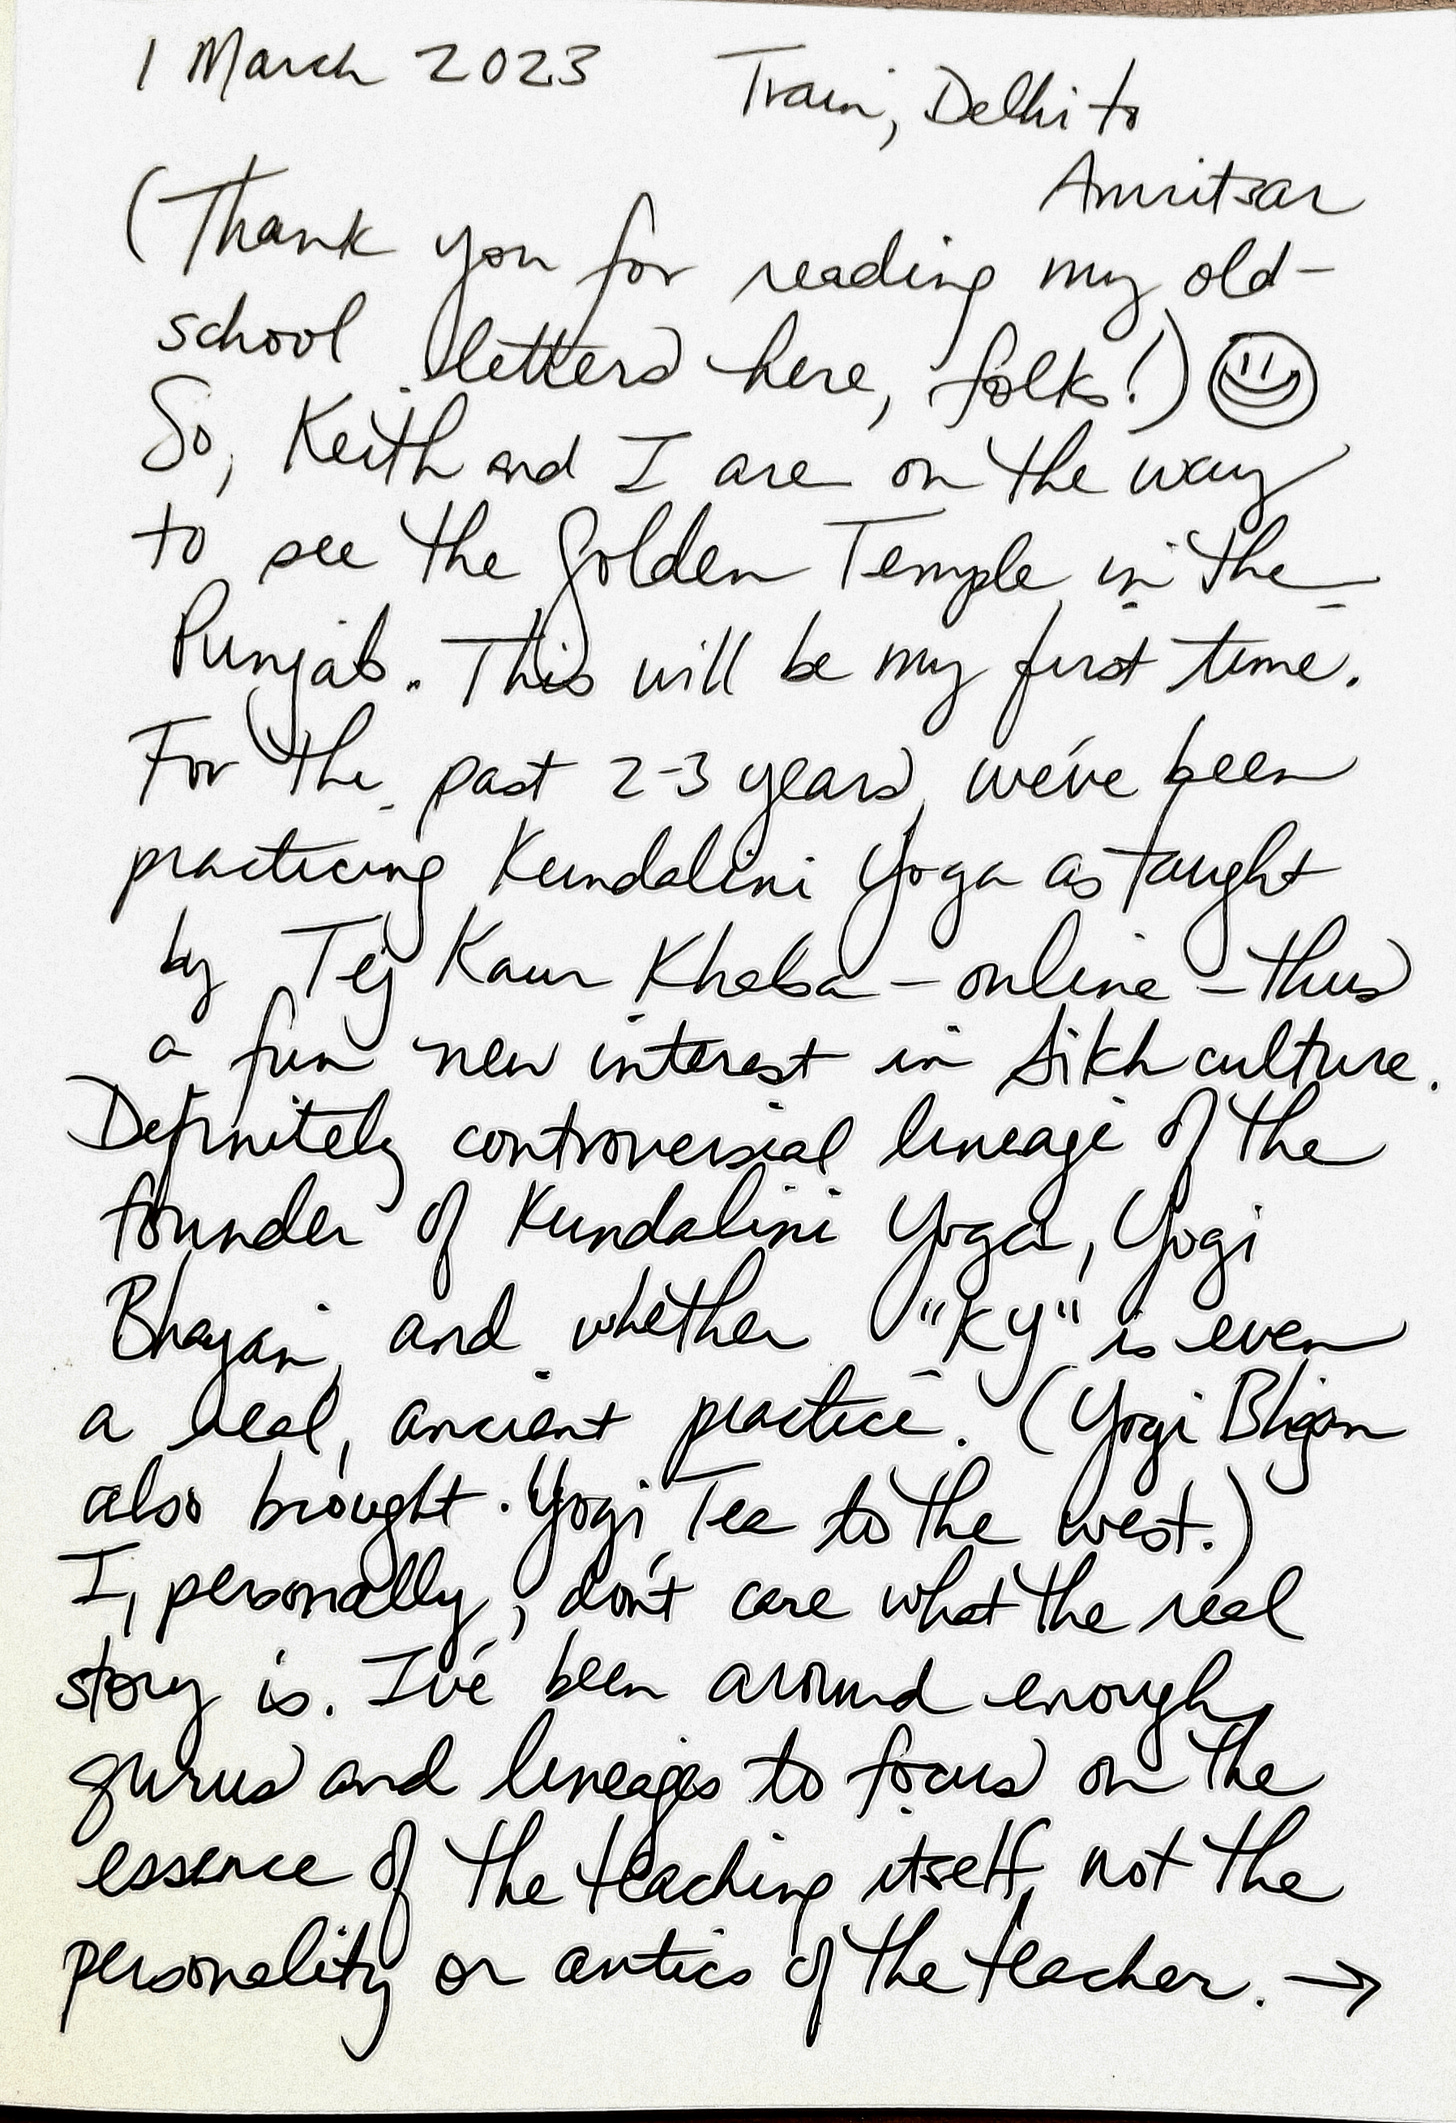 1 March 2023 Train, Delhi to
Amritsar
(Thank you for reading my old-
school letters here, folks!)
So, Keith and I are on the way
to see the Golden Temple in the
Punjab. This will be my first time.
For the past 2-3 years, we've been
practicing Kundalini Yoga as taught
by Tej Kaur Khalsa - online - thus
a fun new interest in Sikh culture.
Definitely controversial lineage of the
founder of Kundalini Yoga, Yogi
Bhajan, and whether "KY" is even
a real, ancient practice. (Yogi Bhajan
also brought Yogi Tea to the west.)
I, personally, don't care what the real
story is. I've been around enough
gurus and lineages to focus on the
essence of the teaching itself, not the
personality or antics of the teacher. →